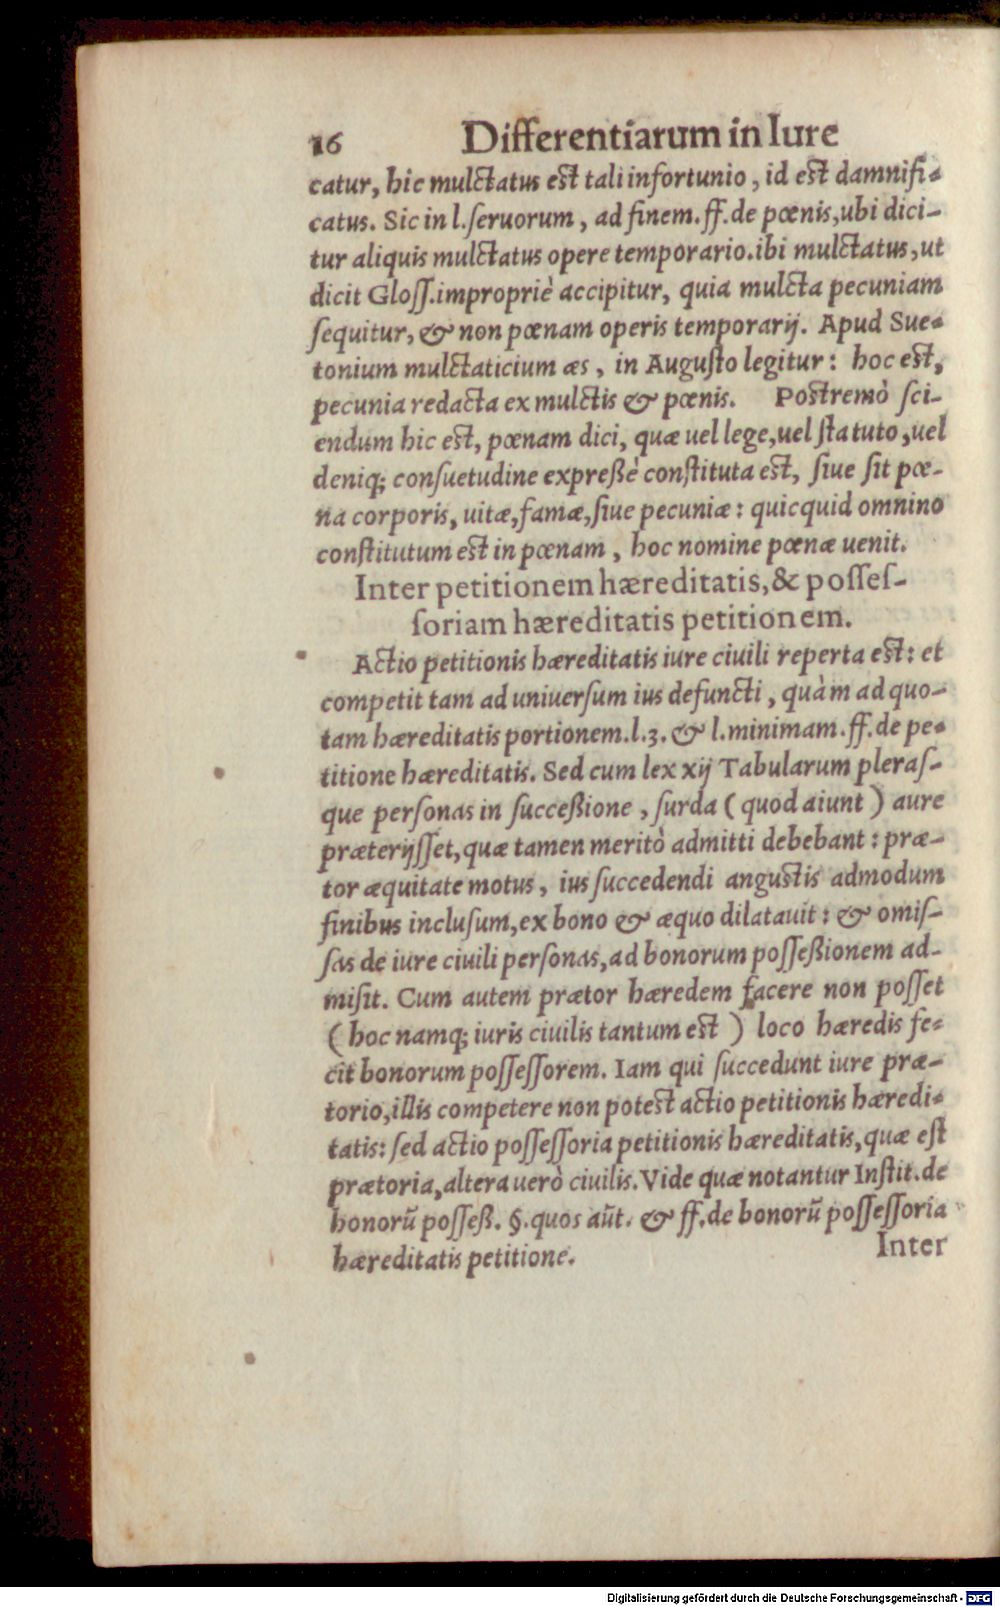 16 Differentiarum in Iure
catur, hic mulctatus est tali infortunio, id est damnifi-
catus. Sic in l. ſeruorum, ad finem. ff. de pœnis, ubi dici-
tur aliquis mulctatus opere temporario. ibi mulctatus, ut
dicit Gloſſ. impropriè accipitur, quia mulcta pecuniam
ſequitur, & non pœnam operis temporarij. Apud Sue-
tonium mulctaticium æs, in Auguſto legitur: hoc est,
pecunia redacta ex mulctis & pœnis. Postremò ſci-
endum hic est, pœnam dici, quæ uel lege, uel ſtatuto, uel
deniq; conſuetudine expreßè conſtituta est, ſiue ſit pœ-
na corporis, uitæ, famæ, ſiue pecuniæ: quicquid omnino
conſtitutum est in pœnam, hoc nomine pœnæ uenit.
Inter petitionem hæreditatis, & poſſeſ-
ſoriam hæreditatis petitionem.
Actio petitionis hæreditatis iure ciuili reperta est: et
competit tam ad uniuerſum ius defuncti, quàm ad quo-
tam hæreditatis portionem. l. 3. & l. minimam. ff. de pe-
titione hæreditatis. Sed cum lex xij Tabularum pleraſ-
que perſonas in ſucceßione, ſurda (quod aiunt) aure
præterijſſet, quæ tamen meritò admitti debebant: præ-
tor æquitate motus, ius ſuccedendi angustis admodum
finibus incluſum, ex bono & æquo dilatauit: & omiſ-
ſas de iure ciuili perſonas, ad bonorum poſſeßionem ad-
miſit. Cum autem prætor hæredem facere non poſſet
(hoc namq; iuris ciuilis tantum est) loco hæredis fe-
cit bonorum poſſeſſorem. Iam qui ſuccedunt iure præ-
torio, illis competere non potest actio petitionis hæredi-
tatis: ſed actio poſſeſſoria petitionis hæreditatis, quæ eſt
prætoria, altera uerò ciuilis. Vide quæ notantur Inſtit. de
bonorũ poſſeß. §. quos aũt. & ff. de bonorũ poſſeſſoria
hæreditatis petitione.
Inter
Digitalisierung gefördert durch die Deutsche Forschungsgemeinschaft - DFG